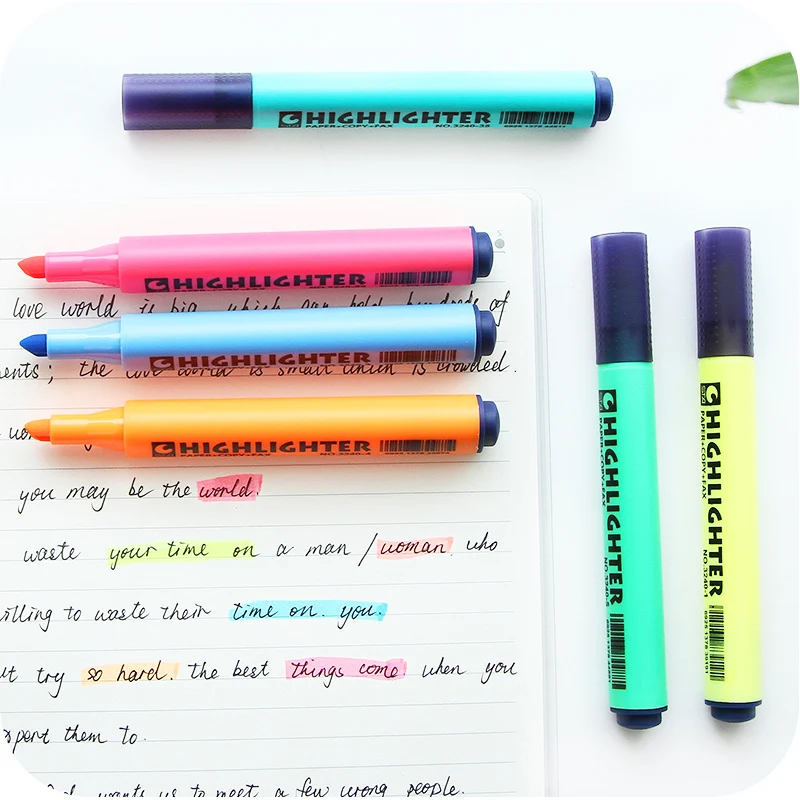 HIGHLIGHTER
PAPER+COPY+FAX NO.3240-38
HIGHLIGHTER
love world is big, which can hold hundreds of
HIGHLIGHTER
ents; the love world is small which is crowded.
HIGHLIGHTER
PAPER+COPY+FAX
you may be the world.
waste your time on a man / woman, who
illing to waste their time on you.
ut try so hard. The best things come when you
xpert them to.
wants us to meet a few wrong people.
STA
HIGHLIGHTER
PAPER+COPY+FAX
STA
HIGHLIGHTER
PAPER+COPY+FAX NO.3240-1